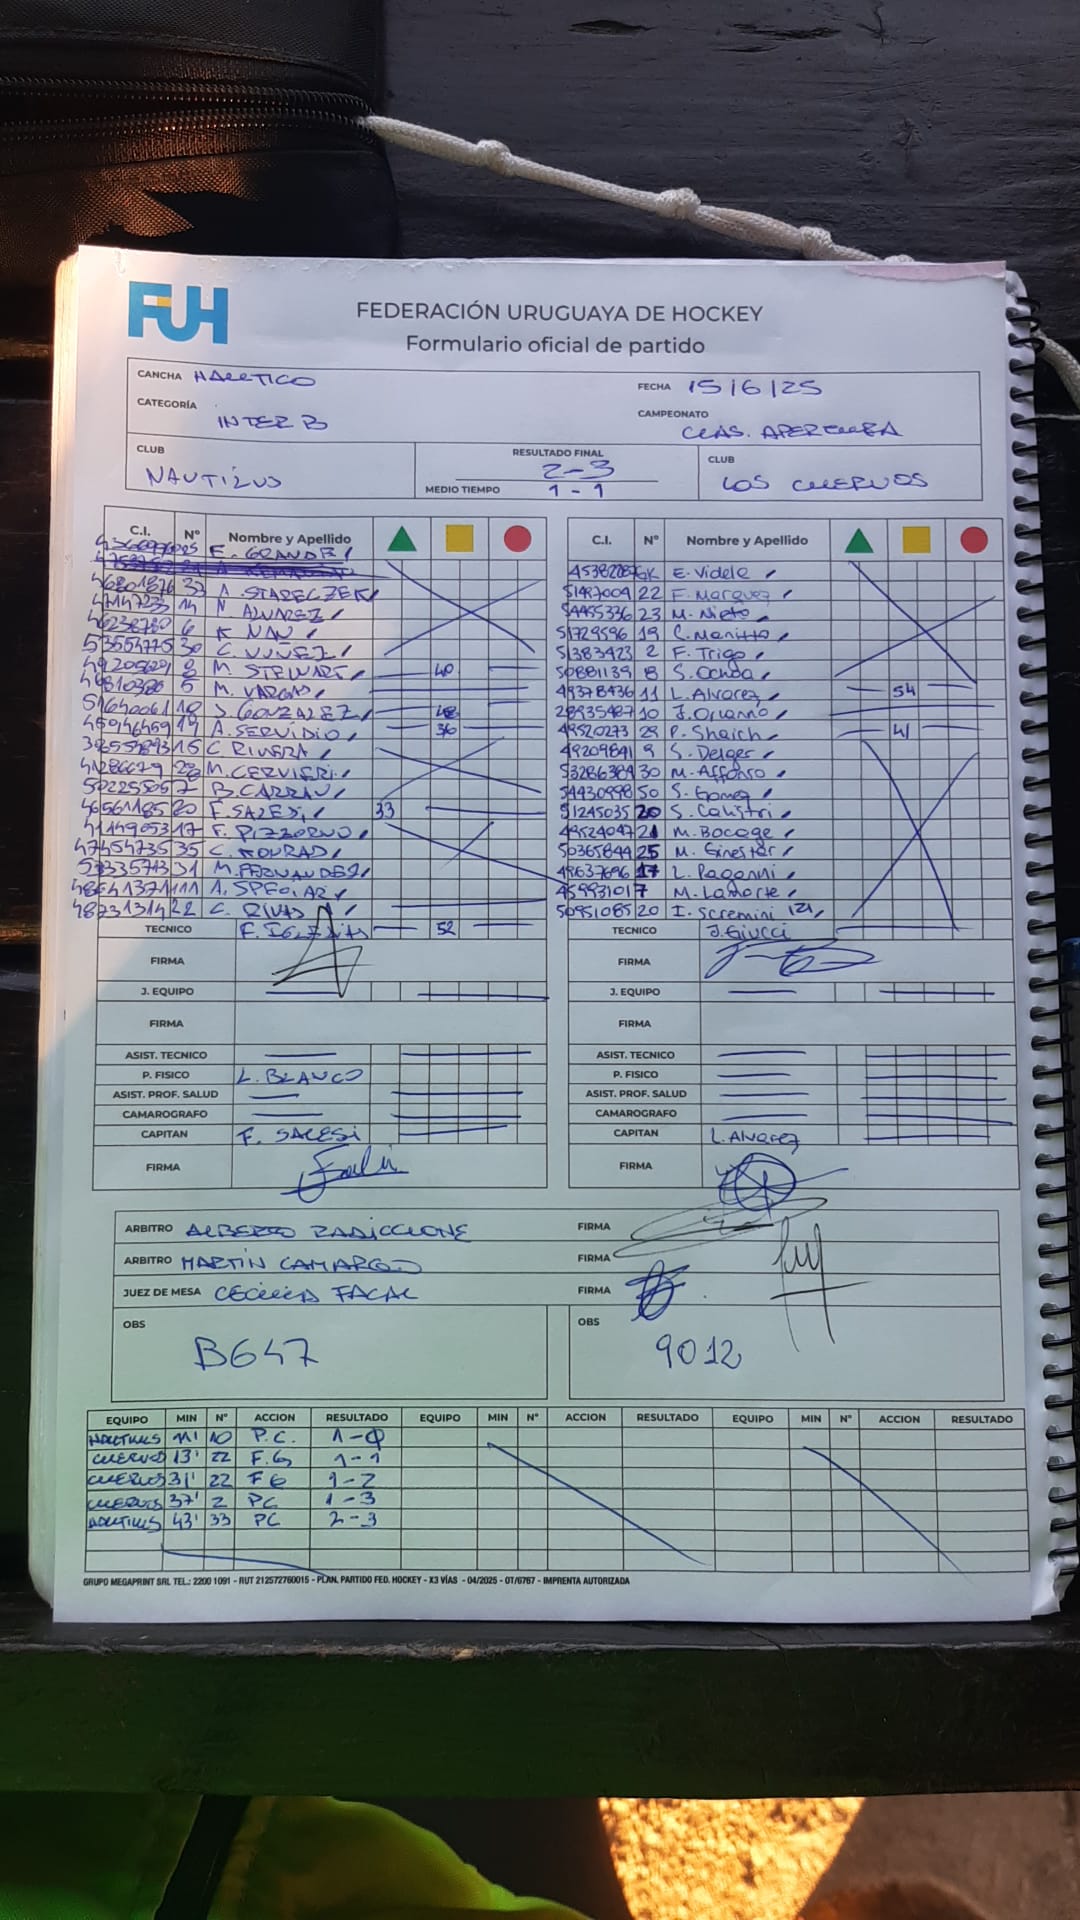 FUH
FEDERACIÓN URUGUAYA DE HOCKEY
Formulario oficial de partido
CANCHA NAUTICO FECHA 15/6/25
CATEGORÍA INTER B CAMPEONATO CLAS. APERTURA
CLUB NAUTILUS RESULTADO FINAL 2-3 CLUB LOS CUERVOS
MEDIO TIEMPO 1-1
C.I. Nº Nombre y Apellido C.I. Nº Nombre y Apellido
E. GRANDE E. Videla
33 A. STARECZEK 51487009 22 F. Marquez
14 N. ALVAREZ 54455336 23 M. Nieto
6 K. NAN 51729596 19 C. Manitto
30 C. NUÑEZ 51383423 2 F. Trigo
8 M. STEWART 40 50881139 8 S. Ochoa
5 M. VARGAS 49378436 11 L. Alvarez 54
51640061 10 S. GONZALEZ 48 28935487 10 J. Orianno
45946459 19 A. SERVIDIO 36 49520273 29 P. Shaich 41
C. RIVERA 49209841 9 S. Delger
M. CERVIERI 53286384 30 M. Affonso
50225505 7 B. CARRAU 54430998 50 S. Gomez
46561185 20 F. SALESI 33 51245035 20 S. Calistri
41149053 17 F. PIZZORNO 49524047 21 M. Bocage
47454735 35 C. KOURAD 50365844 25 M. Ginestar
53335713 31 M. FERNANDEZ 48637696 17 L. Paganni
A. SPEOLAZ 45993101 7 M. Laborte
48731314 22 C. RIVAS 50951085 20 I. Scremini
TECNICO F. IGLESIAS 52 TECNICO J. Giucci
FIRMA FIRMA
J. EQUIPO J. EQUIPO
FIRMA FIRMA
ASIST. TECNICO ASIST. TECNICO
P. FISICO L. BLANCO P. FISICO
ASIST. PROF. SALUD ASIST. PROF. SALUD
CAMAROGRAFO CAMAROGRAFO
CAPITAN F. SALESI CAPITAN L. Alvarez
FIRMA FIRMA
ARBITRO ALBERTO RADICCIONE FIRMA
ARBITRO MARTÍN CAMARGO FIRMA
JUEZ DE MESA CECILIA FACAL FIRMA
OBS B647 OBS 9012
EQUIPO MIN Nº ACCION RESULTADO EQUIPO MIN Nº ACCION RESULTADO EQUIPO MIN Nº ACCION RESULTADO
NAUTILUS 11' 10 P.C. 1-0
CUERVOS 13' 22 F.G 1-1
CUERVOS 31' 22 FG 1-2
CUERVOS 37' 2 PC 1-3
NAUTILUS 43' 33 PC 2-3
GRUPO MEGAPRINT SRL TEL.: 2200 1091 - RUT 212572760015 - PLAN. PARTIDO FED. HOCKEY - X3 VÍAS - 04/2025 - OT/6767 - IMPRENTA AUTORIZADA